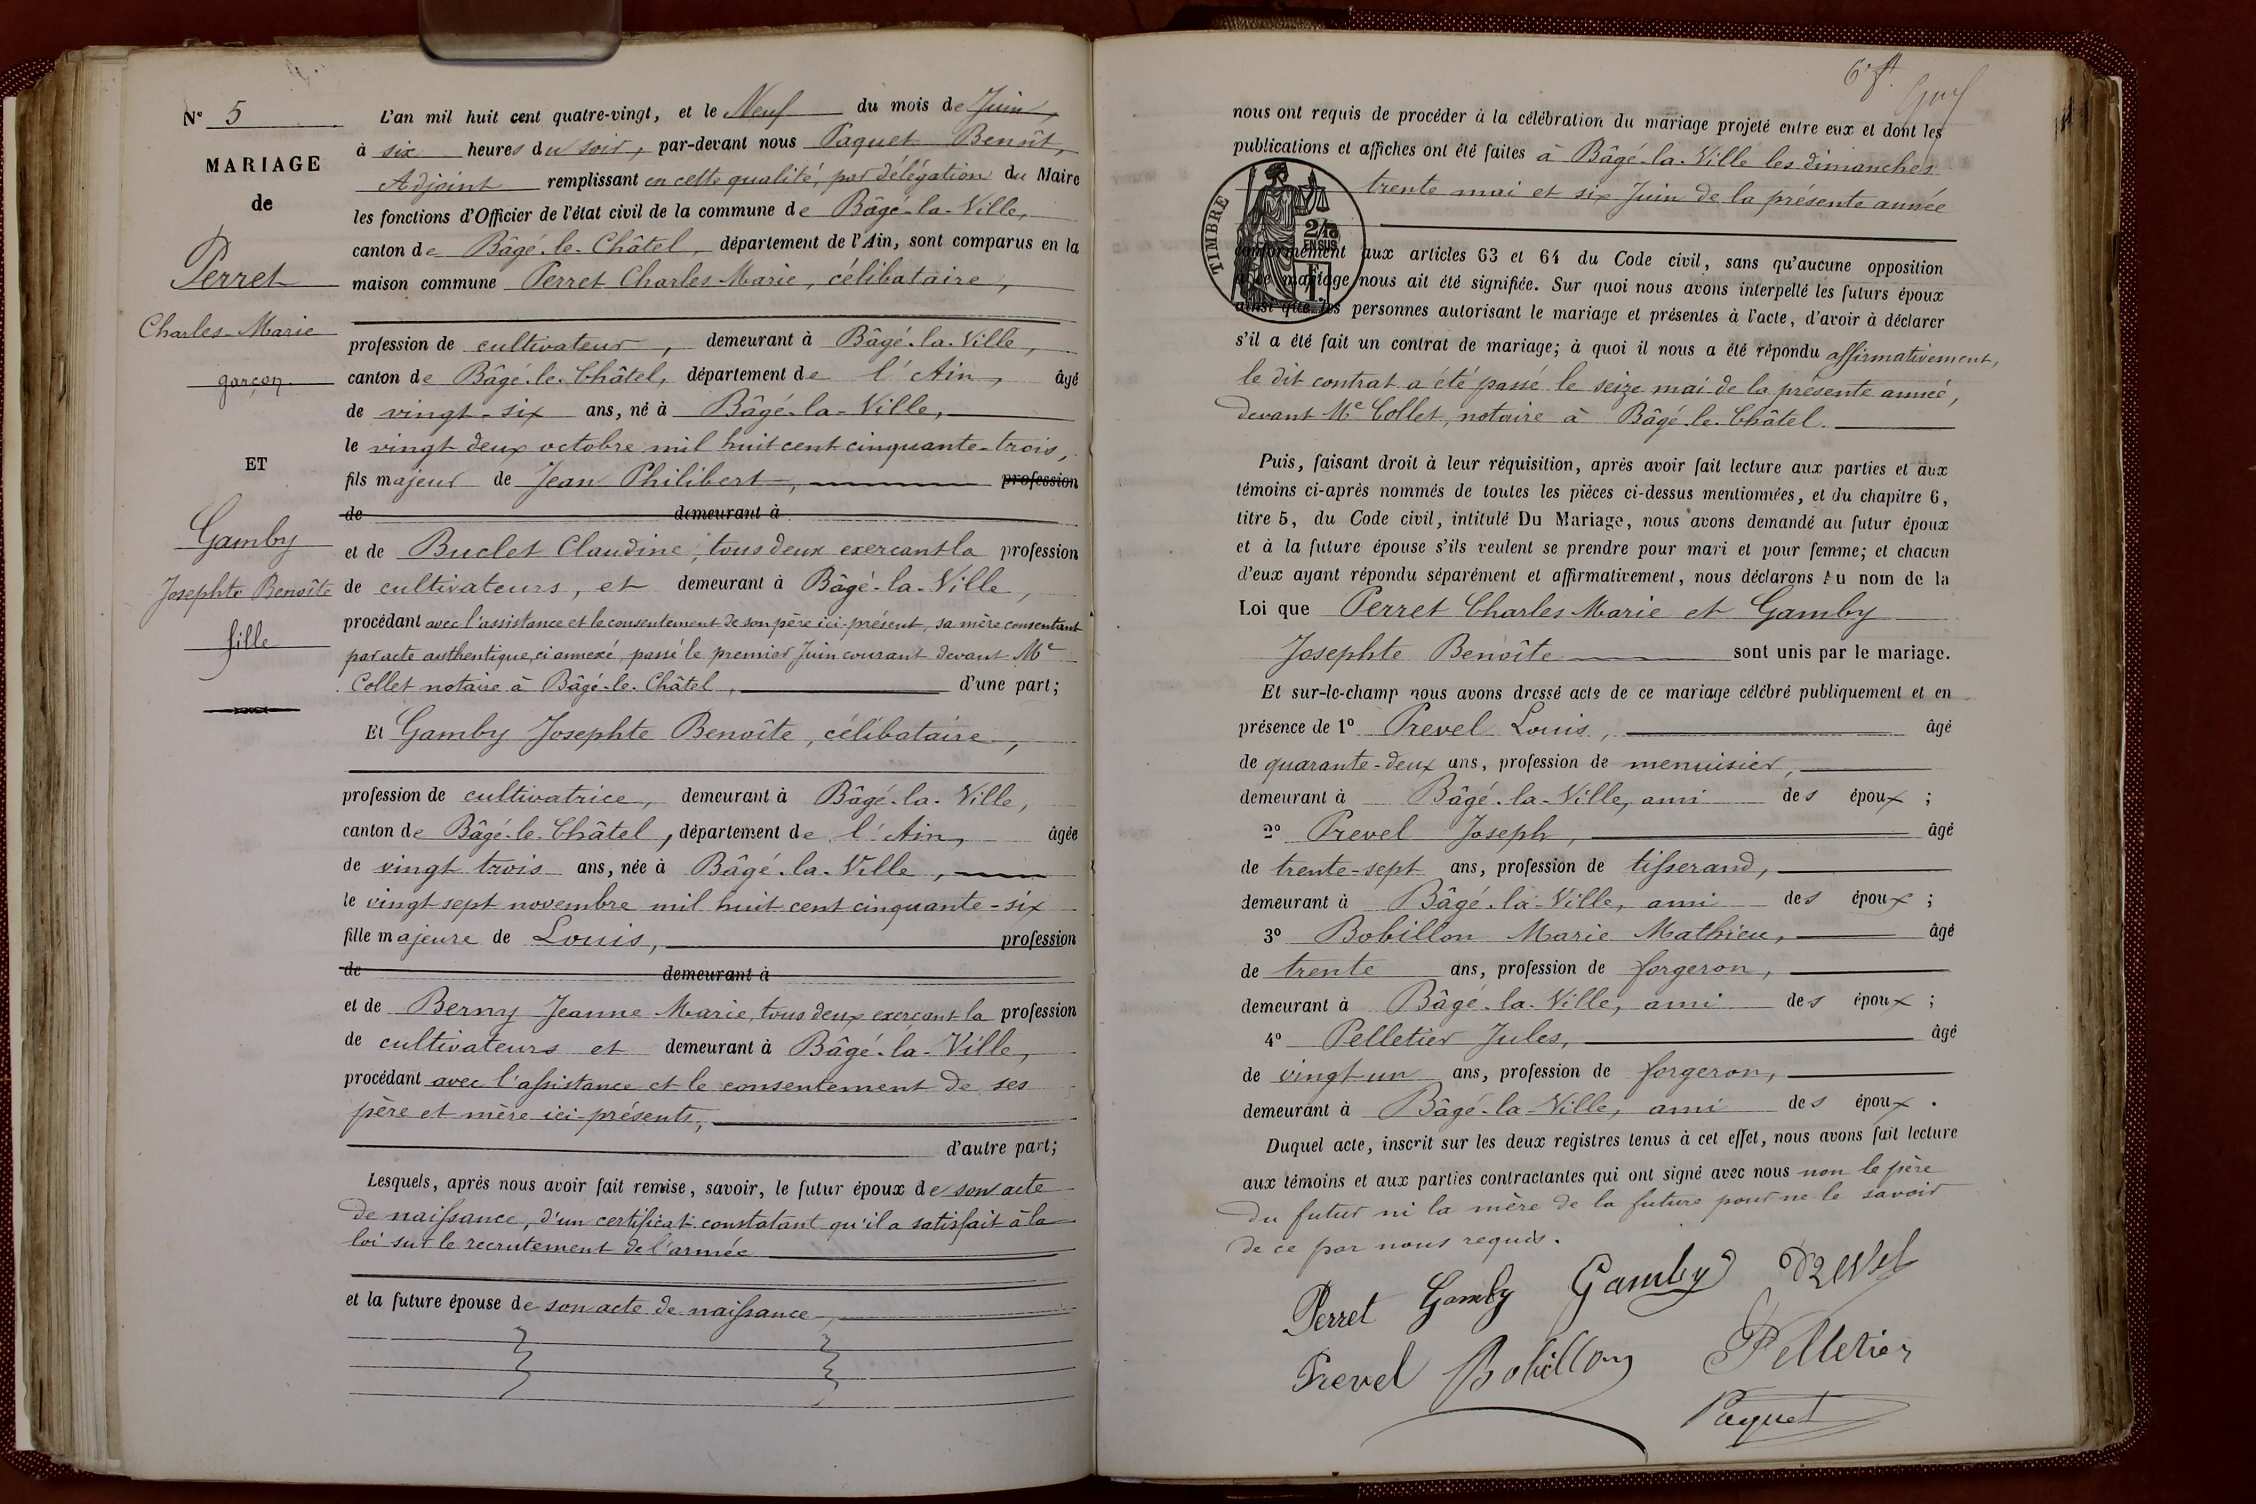 N° 5
MARIAGE
de
Perret
Charles-Marie
garçon
ET
Gamby
Josephte Benoîte
fille
L'an mil huit cent quatre-vingt, et le Neuf du mois de Juin,
à six heures du soir, par-devant nous Paquet Benoît,
Adjoint remplissant en cette qualité, par délégation du Maire
les fonctions d'Officier de l'état civil de la commune de Bâgé-la-Ville,
canton de Bâgé-le-Châtel, département de l'Ain, sont comparus en la
maison commune Perret Charles-Marie, célibataire,
profession de cultivateur, demeurant à Bâgé-la-Ville,
canton de Bâgé-le-Châtel, département de l'Ain, âgé
de vingt-six ans, né à Bâgé-la-Ville,
le vingt deux octobre mil huit cent cinquante-trois,
fils majeur de Jean Philibert, profession
de demeurant à
et de Buclet Claudine, tous deux exerçant la profession
de cultivateurs, et demeurant à Bâgé-la-Ville,
procédant avec l'assistance et le consentement de son père ici-présent, sa mère consentant
par acte authentique, ci annexé, passé le premier Juin courant devant Me
Collet notaire à Bâgé-le-Châtel, d'une part;
Et Gamby Josephte Benoîte, célibataire,
profession de cultivatrice, demeurant à Bâgé-la-Ville,
canton de Bâgé-le-Châtel, département de l'Ain, âgée
de vingt trois ans, née à Bâgé-la-Ville,
le vingt sept novembre mil huit cent cinquante-six
fille majeure de Louis, profession
de demeurant à
et de Berny Jeanne-Marie, tous deux exerçant la profession
de cultivateurs et demeurant à Bâgé-la-Ville,
procédant avec l'assistance et le consentement de ses
père et mère ici-présents,
d'autre part;
Lesquels, après nous avoir fait remise, savoir, le futur époux de son acte
de naissance, d'un certificat constatant qu'il a satisfait à la
loi sur le recrutement de l'armée
et la future épouse de son acte de naissance,
nous ont requis de procéder à la célébration du mariage projeté entre eux et dont les
publications et affiches ont été faites à Bâgé-la-Ville les dimanches
trente mai et six Juin de la présente année
TIMBRE
2/10
EN SUS
conformément aux articles 63 et 64 du Code civil, sans qu'aucune opposition
à ce mariage nous ait été signifiée. Sur quoi nous avons interpellé les futurs époux
ainsi que les personnes autorisant le mariage et présentes à l'acte, d'avoir à déclarer
s'il a été fait un contrat de mariage; à quoi il nous a été répondu affirmativement,
le dit contrat a été passé le seize mai de la présente année,
devant Me Collet, notaire à Bâgé-le-Châtel.
Puis, faisant droit à leur réquisition, après avoir fait lecture aux parties et aux
témoins ci-après nommés de toutes les pièces ci-dessus mentionnées, et du chapitre 6,
titre 5, du Code civil, intitulé Du Mariage, nous avons demandé au futur époux
et à la future épouse s'ils veulent se prendre pour mari et pour femme; et chacun
d'eux ayant répondu séparément et affirmativement, nous déclarons Au nom de la
Loi que Perret Charles-Marie et Gamby
Josephte Benoîte sont unis par le mariage.
Et sur-le-champ nous avons dressé acte de ce mariage célébré publiquement et en
présence de 1° Prevel Louis, âgé
de quarante-deux ans, profession de menuisier,
demeurant à Bâgé-la-Ville, ami des époux;
2° Prevel Joseph, âgé
de trente-sept ans, profession de tisserand,
demeurant à Bâgé-la-Ville, ami des époux;
3° Bobillon Marie Mathieu, âgé
de trente ans, profession de forgeron,
demeurant à Bâgé-la-Ville, ami des époux;
4° Pelletier Jules, âgé
de vingt-un ans, profession de forgeron,
demeurant à Bâgé-la-Ville, ami des époux.
Duquel acte, inscrit sur les deux registres tenus à cet effet, nous avons fait lecture
aux témoins et aux parties contractantes qui ont signé avec nous non le père
du futur ni la mère de la future pour ne le savoir
de ce par nous requis.
Perret Gamby Gamby Prevel
Prevel Bobillon Pelletier
Paquet